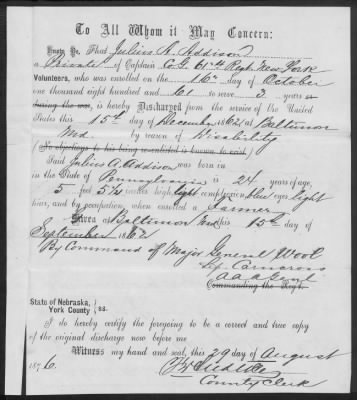 To All Whom it May Concern:
Know Ye, That Julius A. Addison
a Private of Captain Co. G. 61st Regt. New York
Volunteers, who was enrolled on the 16th day of October
one thousand eight hundred and 61 to serve 3 years or
during the war, is hereby Discharged from the service of the United
States this 15th day of December 1862 at Baltimore
Md. by reason of Disability
(No objections to his being reenlisted is known to exist.)
Said Julius A. Addison was born in
in the State of Pennsylvania is 24 years of age,
5 feet 5 1/2 inches high, light complexion, blue eyes, light
hair, and by occupation, when enrolled a Farmer
Given at Baltimore Md this 15th day of
September 1862
By Command of Major General Wool
Cameron
Commanding the Reg't.
State of Nebraska,
York County } ss.
I do hereby certify the foregoing to be a correct and true copy
of the original discharge now before me
Witness my hand and seal, this 29 day of August
1876.
County Clerk